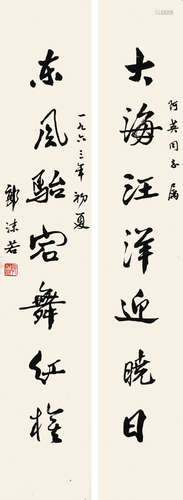 阿英同志属
大海汪洋迎曉日
一九六三年初夏
东風駘宕舞红旗
郭沫若